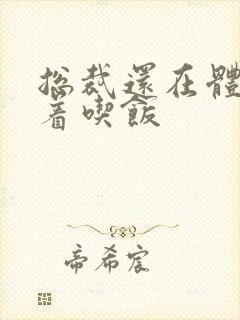 總裁還在體
着喫飯
帝希宸